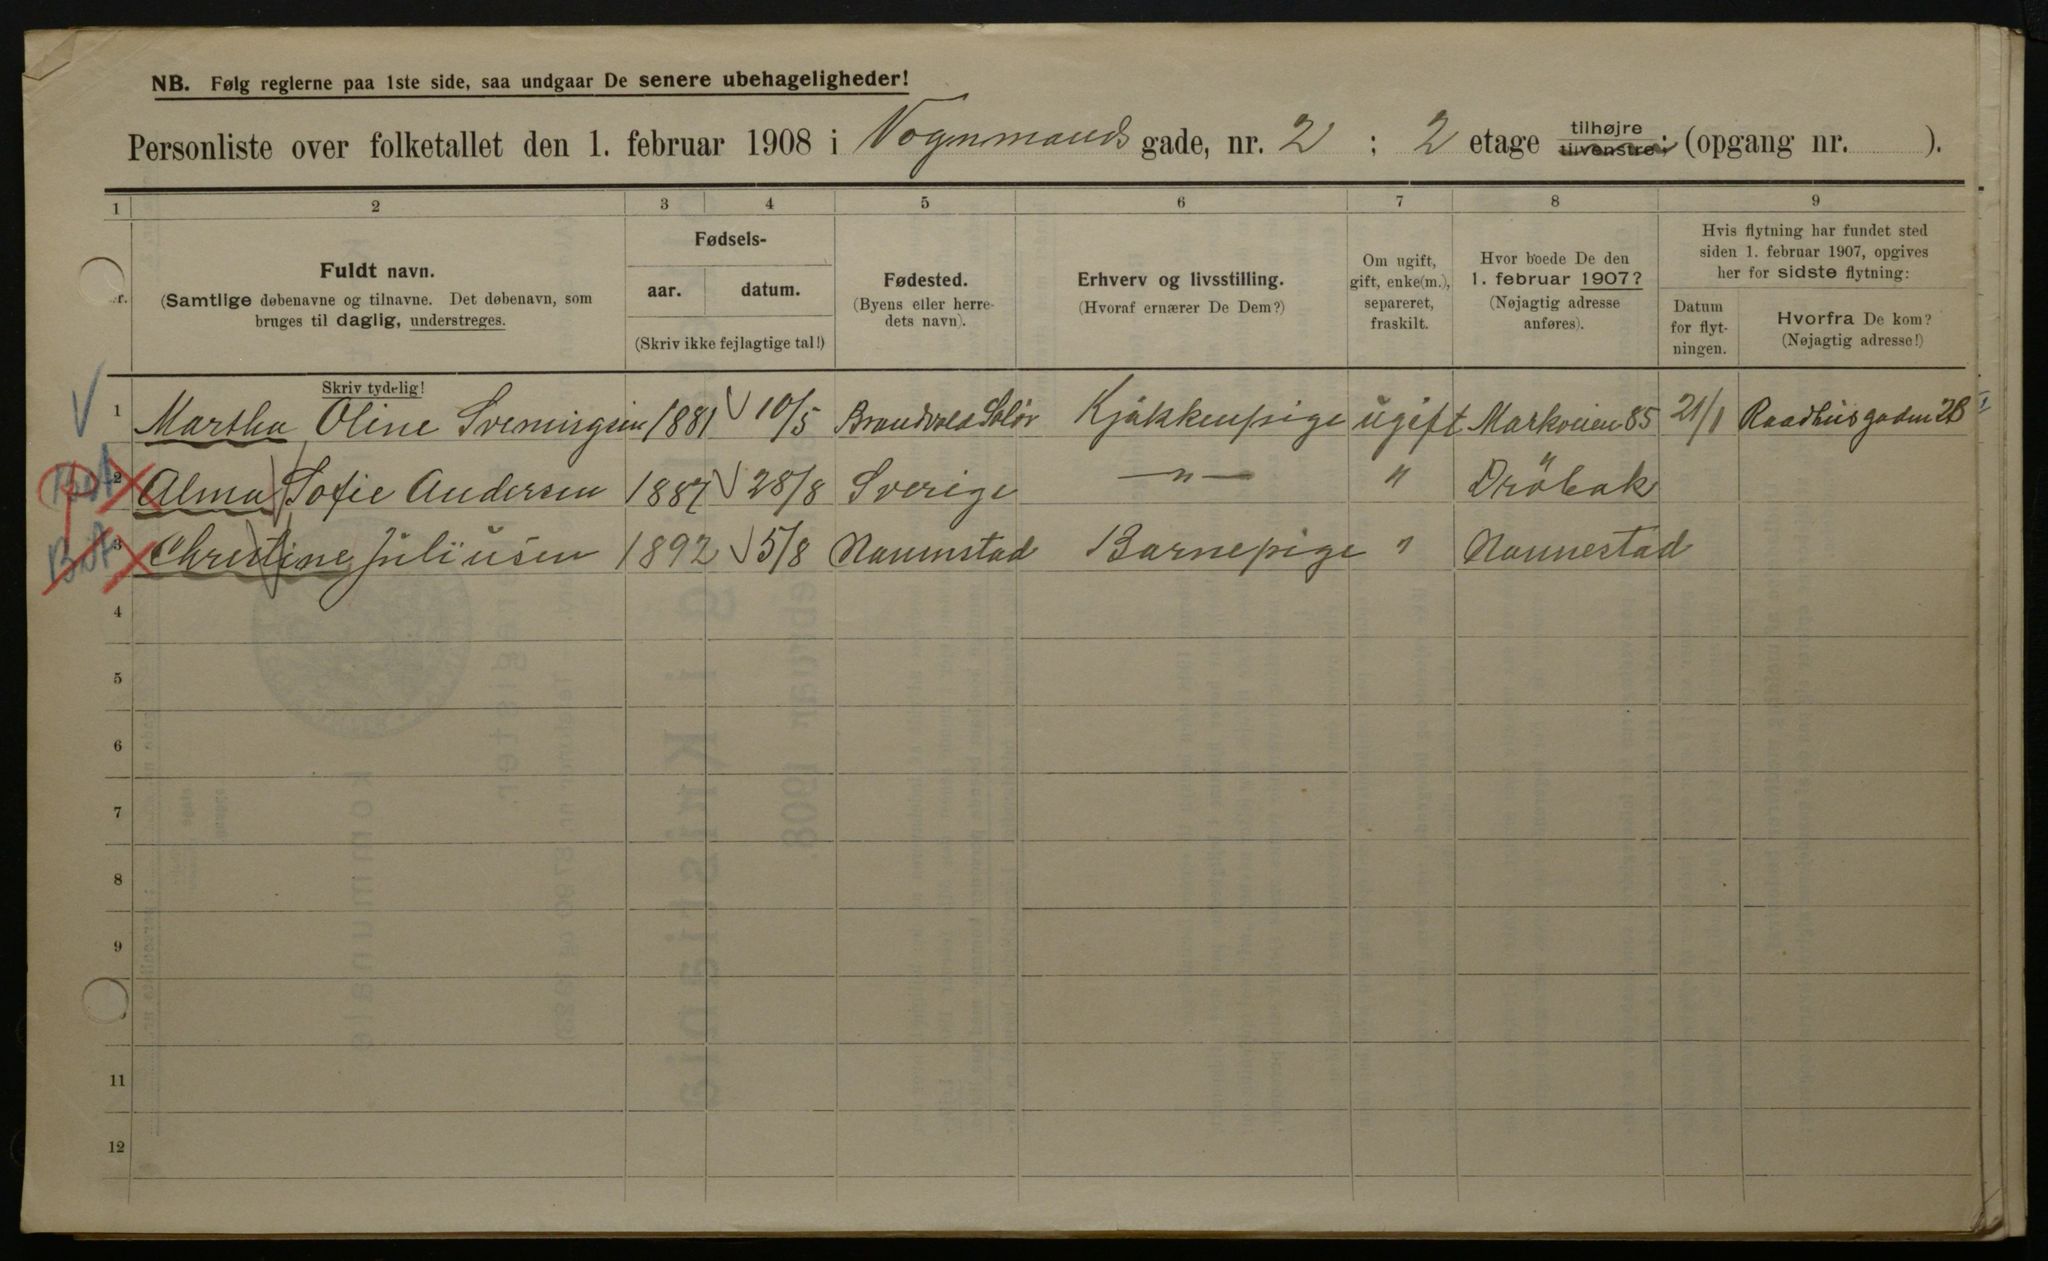 NB. Følg reglerne paa 1ste side, saa undgaar De senere ubehageligheder!
Personliste over folketallet den 1. februar 1908 i Vognmands gade, nr. 2 ; 2 etage tilhøjre tilvenstre; (opgang nr. ).
1 2 3 4 5 6 7 8 9
Fuldt navn.
(Samtlige døbenavne og tilnavne. Det døbenavn, som
bruges til daglig, understreges.
Skriv tydelig!
Fødsels-
aar. datum.
(Skriv ikke fejlagtige tal!)
Fødested.
(Byens eller herre-
dets navn).
Erhverv og livsstilling.
(Hvoraf ernærer De Dem?)
Om ugift,
gift, enke(m.),
separeret,
fraskilt.
Hvor boede De den
1. februar 1907?
(Nøjagtig adresse
anføres).
Hvis flytning har fundet sted
siden 1. februar 1907, opgives
her for sidste flytning:
Datum
for flyt-
ningen.
Hvorfra De kom?
(Nøjagtig adresse!)
1 Martha Oline Sveningsen 1881 10/5 Brandvold Solør Kjøkkenpige ugift Markveien 85 21/1 Raadhusgaden 28
2 Alma Sofie Andersen 1887 28/8 Sverige —"— " Dröbak
3 Christine Juliusen 1892 5/8 Nannestad Barnepige " Nannestad
4
5
6
7
8
9
11
12